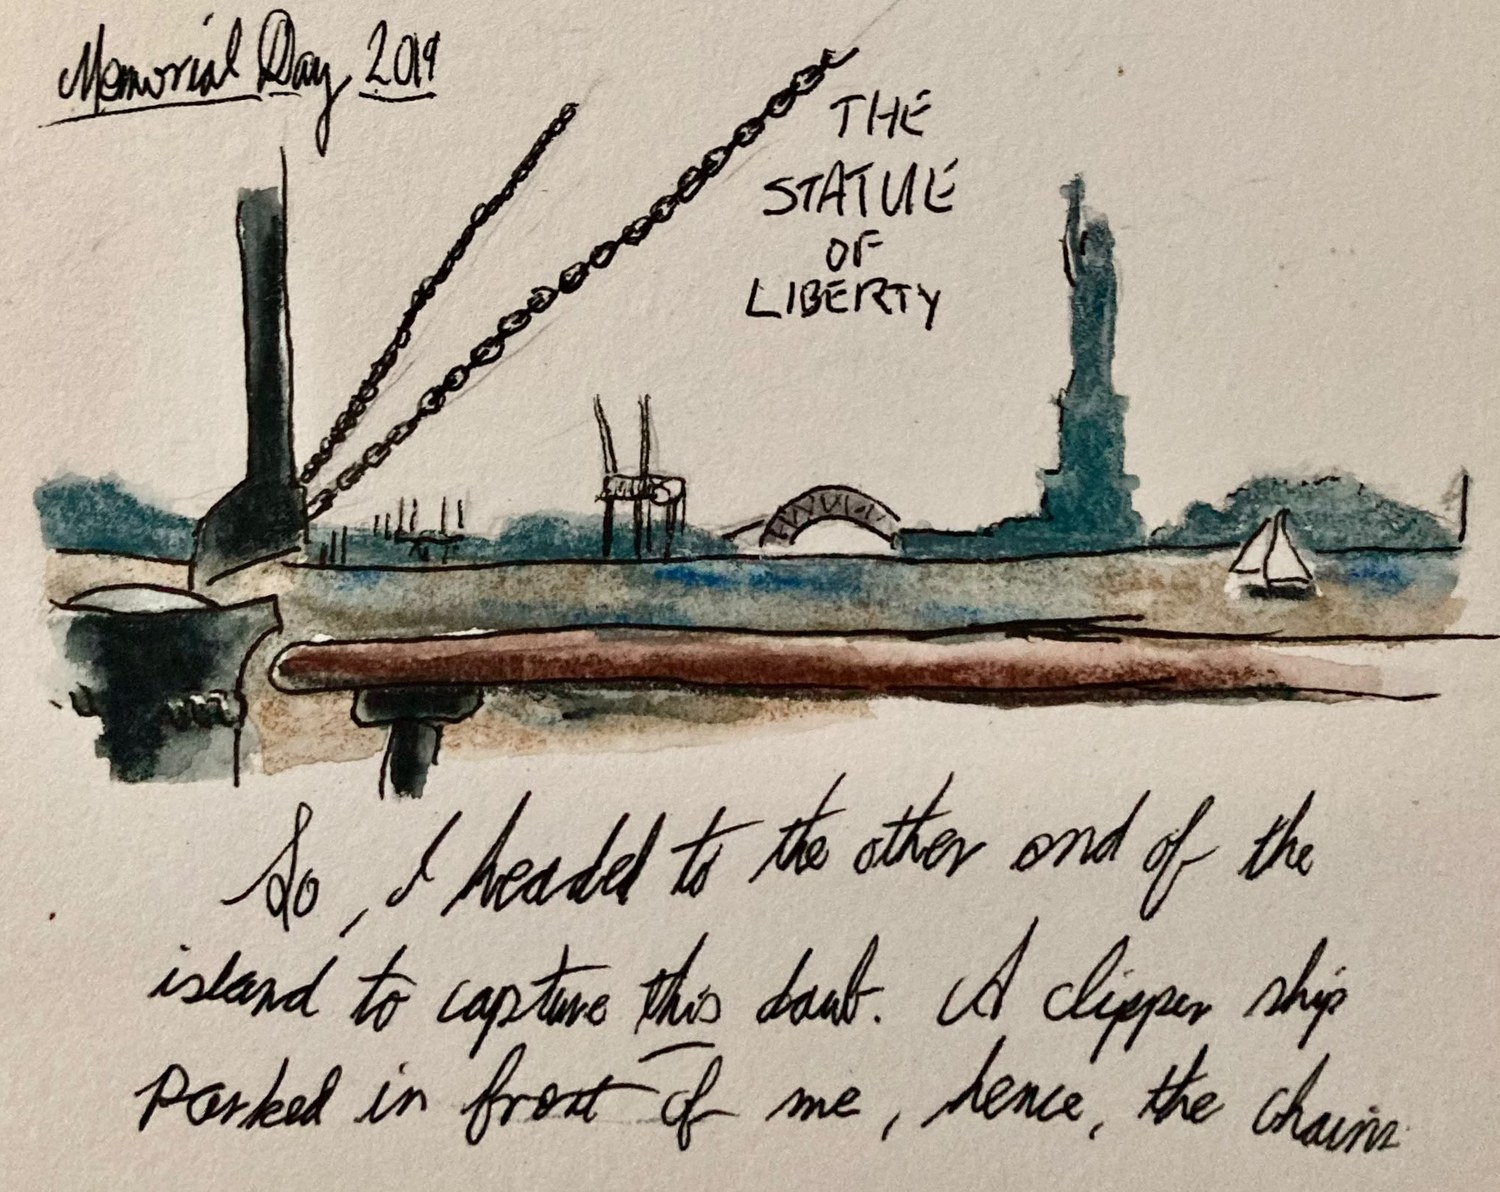 Memorial Day 2019
THE
STATUE
OF
LIBERTY
So, I headed to the other end of the
island to capture this daub. A clipper ship
Parked in front of me, hence, the chains